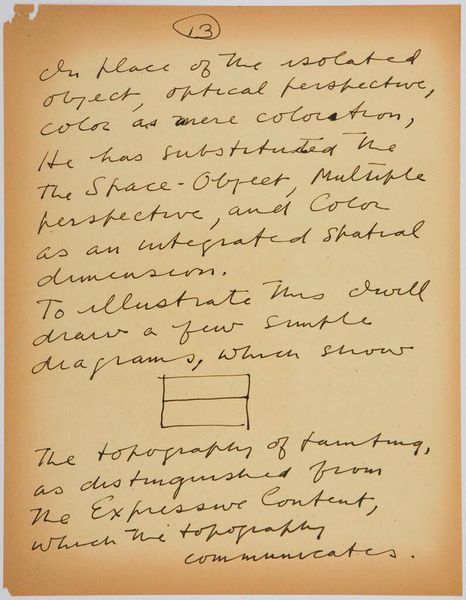 13
In place of the isolated
object, optical perspective,
color as mere coloration,
He has substituted the
the Space-Object, Multiple
perspective, and Color
as an integrated spatial
dimension.
To illustrate this I will
draw a few simple
diagrams, which show
The topography of painting,
as distinguished from
the Expressive Content,
which the topography
communicates.